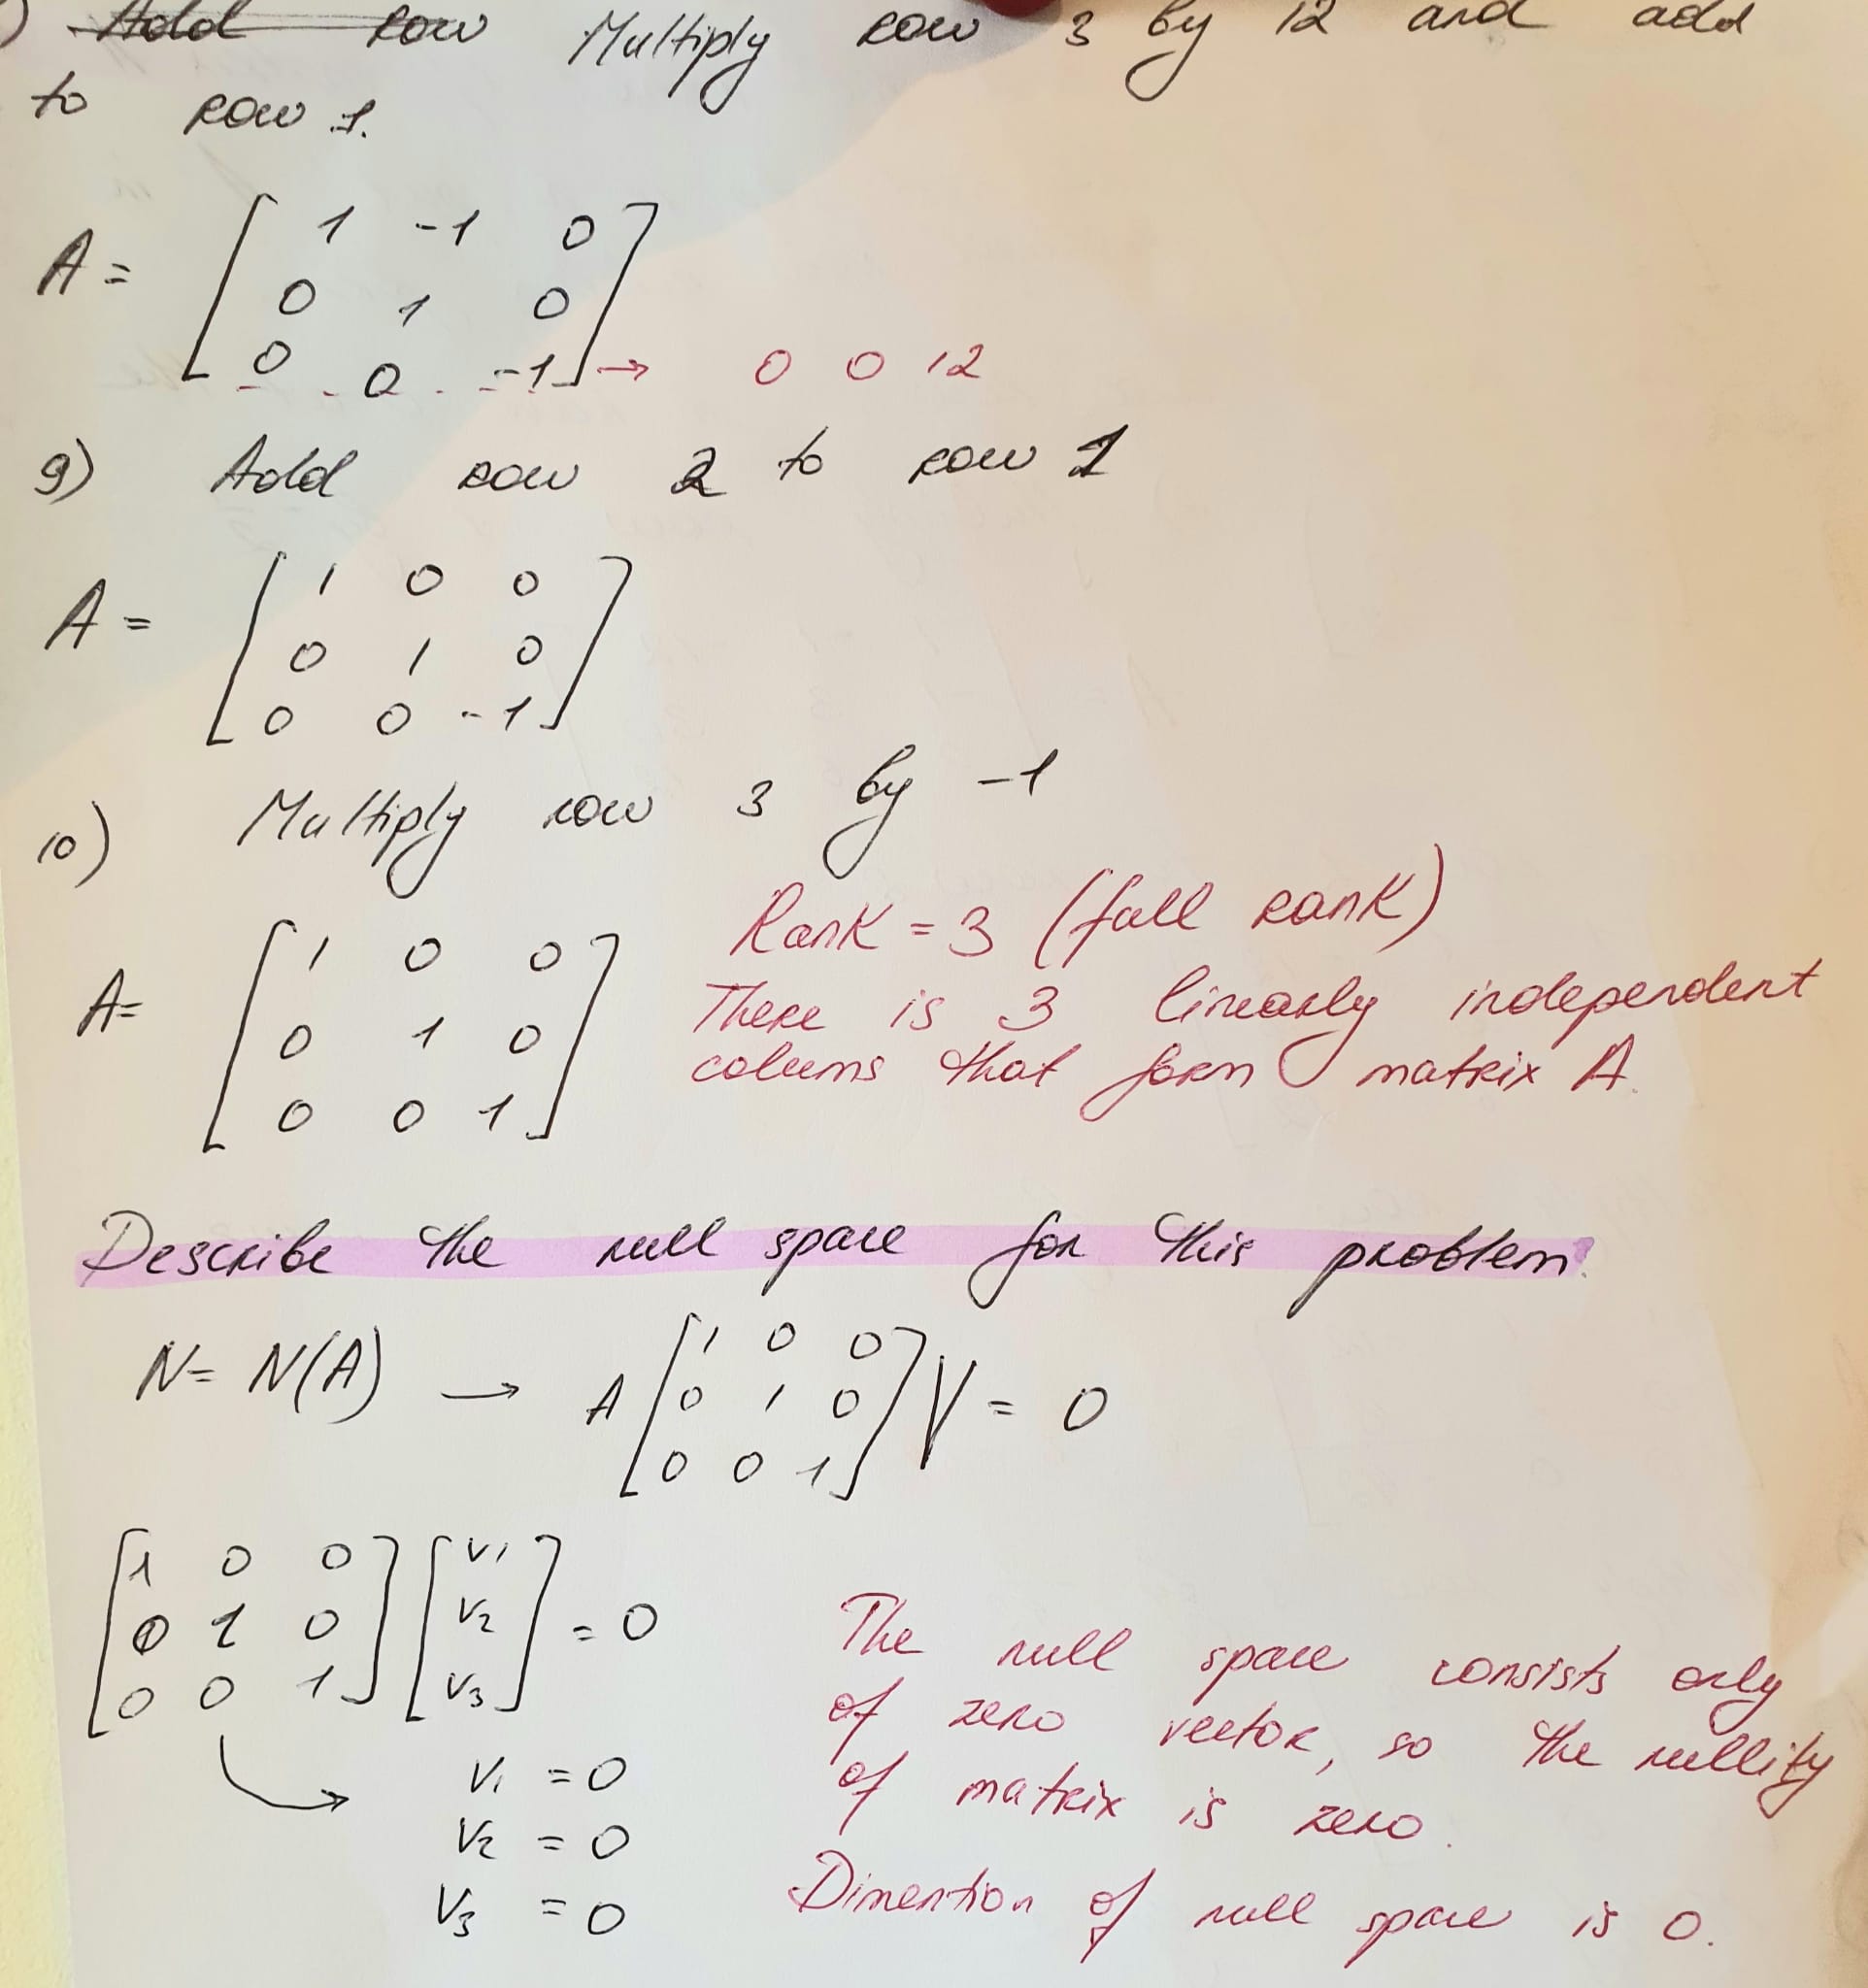 ) Add row Multiply row 3 by 12 and add
to row 1.
A = [ 1 -1 0
0 1 0
0 0 -1 ] → 0 0 12
9) Add row 2 to row 1
A = [ 1 0 0
0 1 0
0 0 -1 ]
10) Multiply row 3 by -1
Rank = 3 (full rank)
A= [ 1 0 0
0 1 0
0 0 1 ]
There is 3 linearly independent
colums that form matrix A.
Describe the null space for this problem.
N = N(A) → A [ 1 0 0
0 1 0
0 0 1 ] V = 0
[ 1 0 0
0 1 0
0 0 1 ] [ v1
v2
v3 ] = 0
v1 = 0
v2 = 0
v3 = 0
The null space consists only
of zero vector, so the nullity
of matrix is zero.
Dimention of null space is 0.